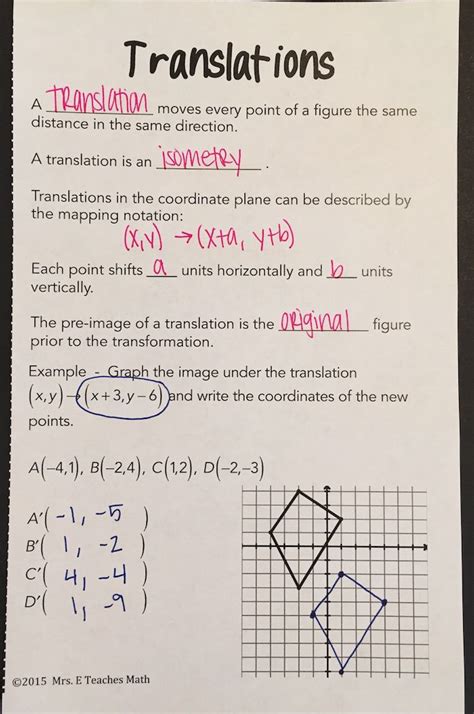 Translations
A TRANslation moves every point of a figure the same
distance in the same direction.
A translation is an isometRy .
Translations in the coordinate plane can be described by
the mapping notation:
(x,y) → (x+a, y+b)
Each point shifts a units horizontally and b units
vertically.
The pre-image of a translation is the oRiginal figure
prior to the transformation.
Example - Graph the image under the translation
(x,y)→(x+3,y−6) and write the coordinates of the new
points.
A(−4,1), B(−2,4), C(1,2), D(−2,−3)
A′( -1, -5 )
B′( 1, -2 )
C′( 4, -4 )
D′( 1, -9 )
©2015 Mrs. E Teaches Math